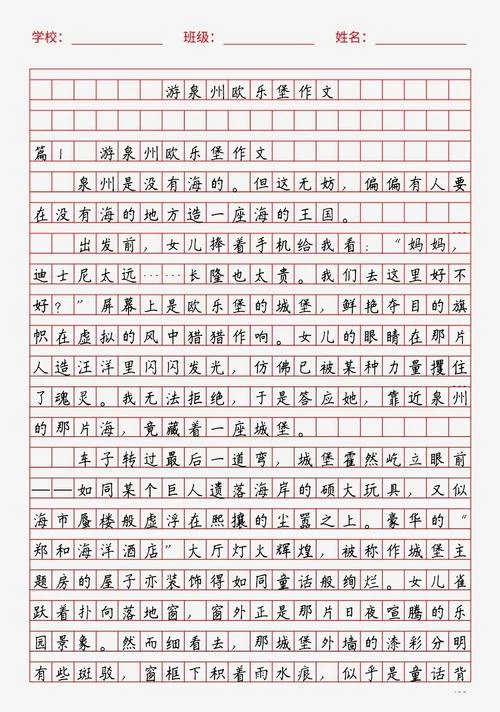 学校： 班级： 姓名：
游泉州欧乐堡作文
篇1 游泉州欧乐堡作文
泉州是没有海的。但这无妨，偏偏有人要
在没有海的地方造一座海的王国。
出发前，女儿捧着手机给我看：“妈妈，
迪士尼太远……长隆也太贵。我们去这里好不
好？”屏幕上是欧乐堡的城堡，鲜艳夺目的旗
帜在虚拟的风中猎猎作响。女儿的眼睛在那片
人造汪洋里闪闪发光，仿佛已被某种力量攫住
了魂灵。我无法拒绝，于是答应她，靠近泉州
的那片海，竟藏着一座城堡。
车子转过最后一道弯，城堡霍然屹立眼前
——如同某个巨人遗落海岸的硕大玩具，又似
海市蜃楼般虚浮在熙攘的尘嚣之上。豪华的“
郑和海洋酒店”大厅灯火辉煌，被称作城堡主
题房的屋子亦装饰得如同童话般绚烂。女儿雀
跃着扑向落地窗，窗外正是那片日夜喧腾的乐
园景象。然而细看去，那城堡外墙的漆彩分明
有些斑驳，窗框下积着雨水痕，似乎是童话背